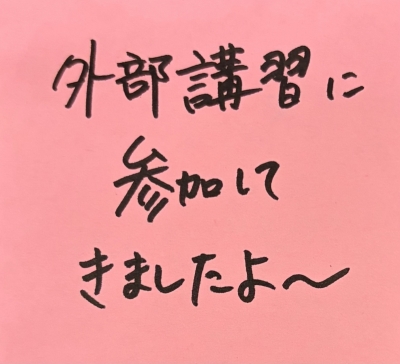 外部講習に
参加して
きましたよ～